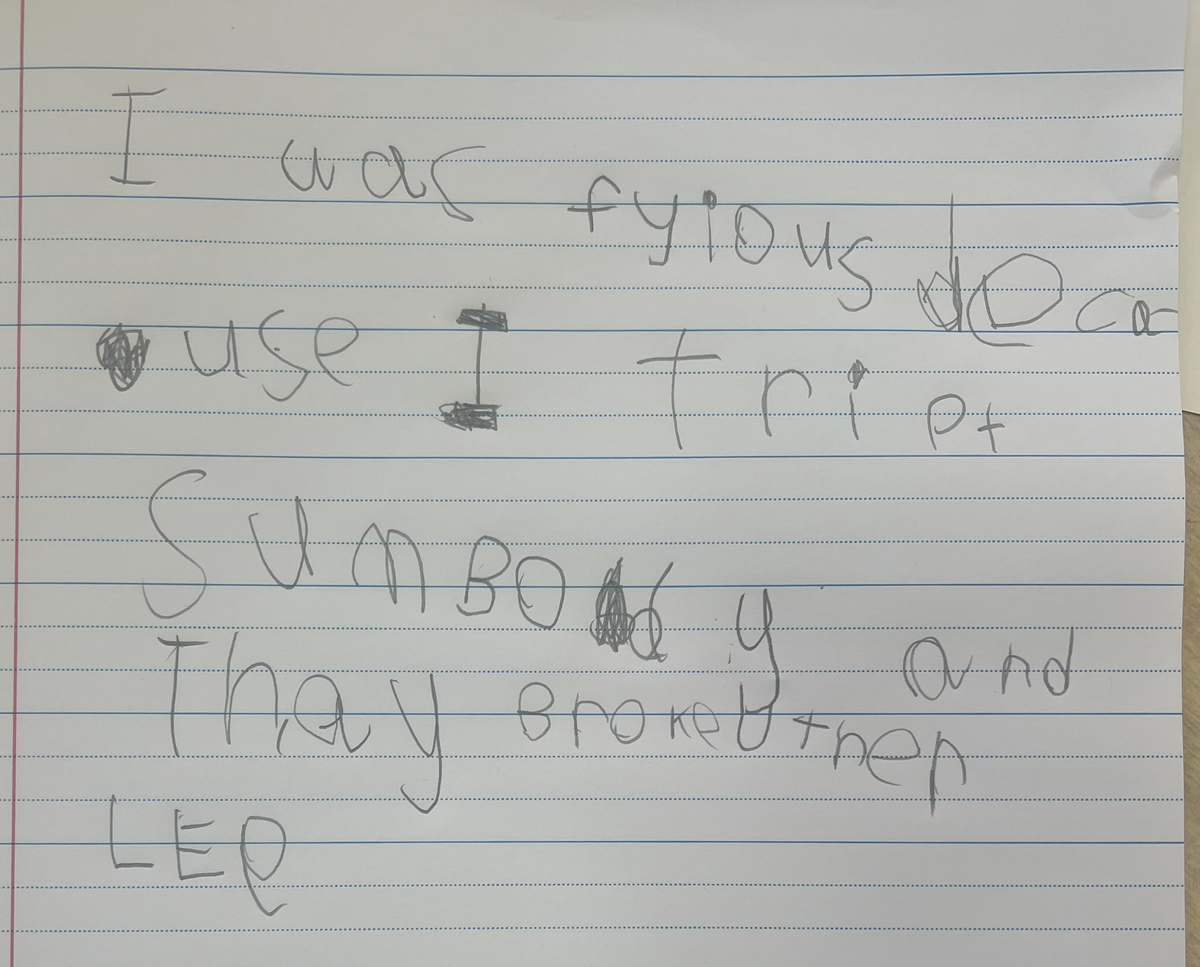 I was fyious deca
use I tript
SumBody and
Thay Broke ther
LEg